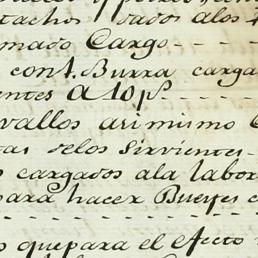 tachos dados alos
mado Cargo
cont. Burra carga
entes a 10 ps.
vallos asimismo
tas delos Sirvientes
s cargados ala labor
para hacer Bueyes
s quepara el efecto